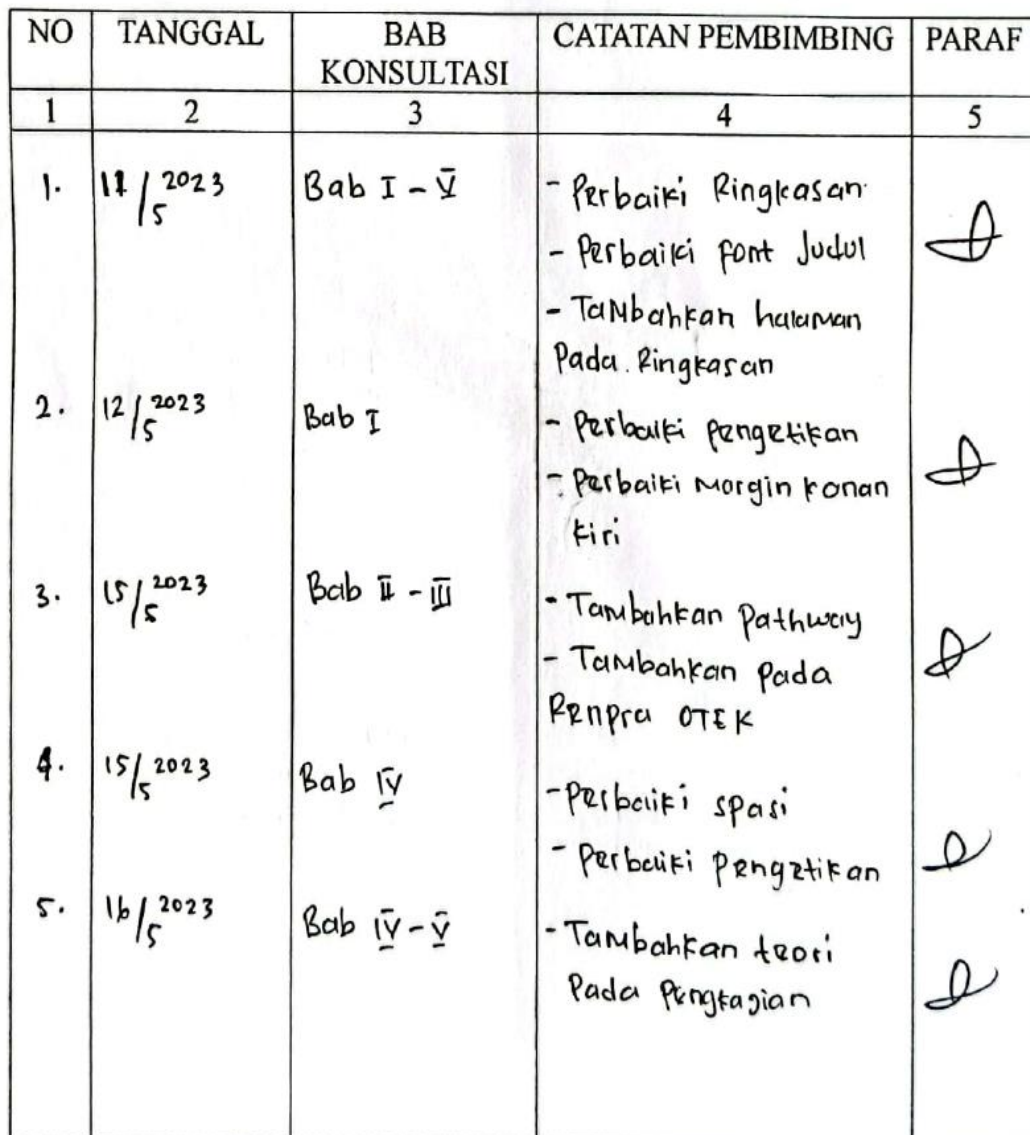 NO TANGGAL BAB KONSULTASI CATATAN PEMBIMBING PARAF
1 2 3 4 5
1. 11/5 2023 Bab I - V - Perbaiki Ringkasan
- Perbaiki font Judul
- Tambahkan halaman
Pada Ringkasan
2. 12/5 2023 Bab I - Perbaiki pengetikan
- Perbaiki Margin kanan
kiri
3. 15/5 2023 Bab II - III - Tambahkan Pathway
- Tambahkan Pada
Renpra OTEK
4. 15/5 2023 Bab IV - Perbaiki spasi
- Perbaiki Pengetikan
5. 16/5 2023 Bab IV - V - Tambahkan teori
Pada Pengkajian